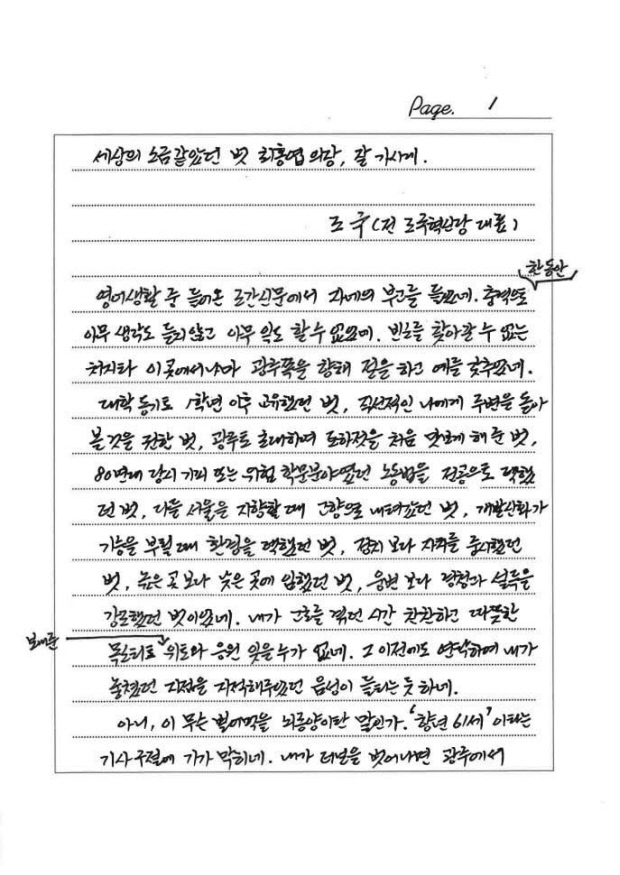 Page. 1
세상의 소금같았던 벗 최홍엽 의장, 잘 가시게.
조 국 (전 조국혁신당 대표)
한동안
영어생활 중 들어온 조간신문에서 자네의 부고를 들었네. 충격으로
아무 생각도 들지 않고 아무 일도 할 수 없었네. 빈소를 찾아갈 수 없는
처지라 이 곳에서나마 광주쪽을 향해 절을 하고 예를 갖추었네.
대학 동기로 1학년 이후 교유했던 벗, 직선적인 나에게 주변을 돌아
볼 것을 권한 벗, 광주로 초대하며 토하젓을 처음 맛보게 해 준 벗,
80년대 당시 기피 또는 위험 학문분야였던 노동법을 전공으로 택했
던 벗, 다들 서울을 지향할 때 고향으로 내려갔던 벗, 개발신화가
기승을 부릴 때 환경을 택했던 벗, 정치 보다 자치를 중시했던
벗, 높은 곳 보다 낮은 곳에 임했던 벗, 웅변 보다 경청과 설득을
강조했던 벗이었네. 내가 고초를 겪던 시간 찬찬하고 따뜻한
보내준
목소리로 위로와 응원 잊을 수가 없네. 그 이전에도 연락하여 내가
놓쳤던 지점을 지적해주었던 음성이 들리는 듯 하네.
아니, 이 무슨 벌어먹을 뇌종양이란 말인가. '향년 61세' 이라는
기사 구절에 기가 막히네. 내가 영어를 벗어나면 광주에서